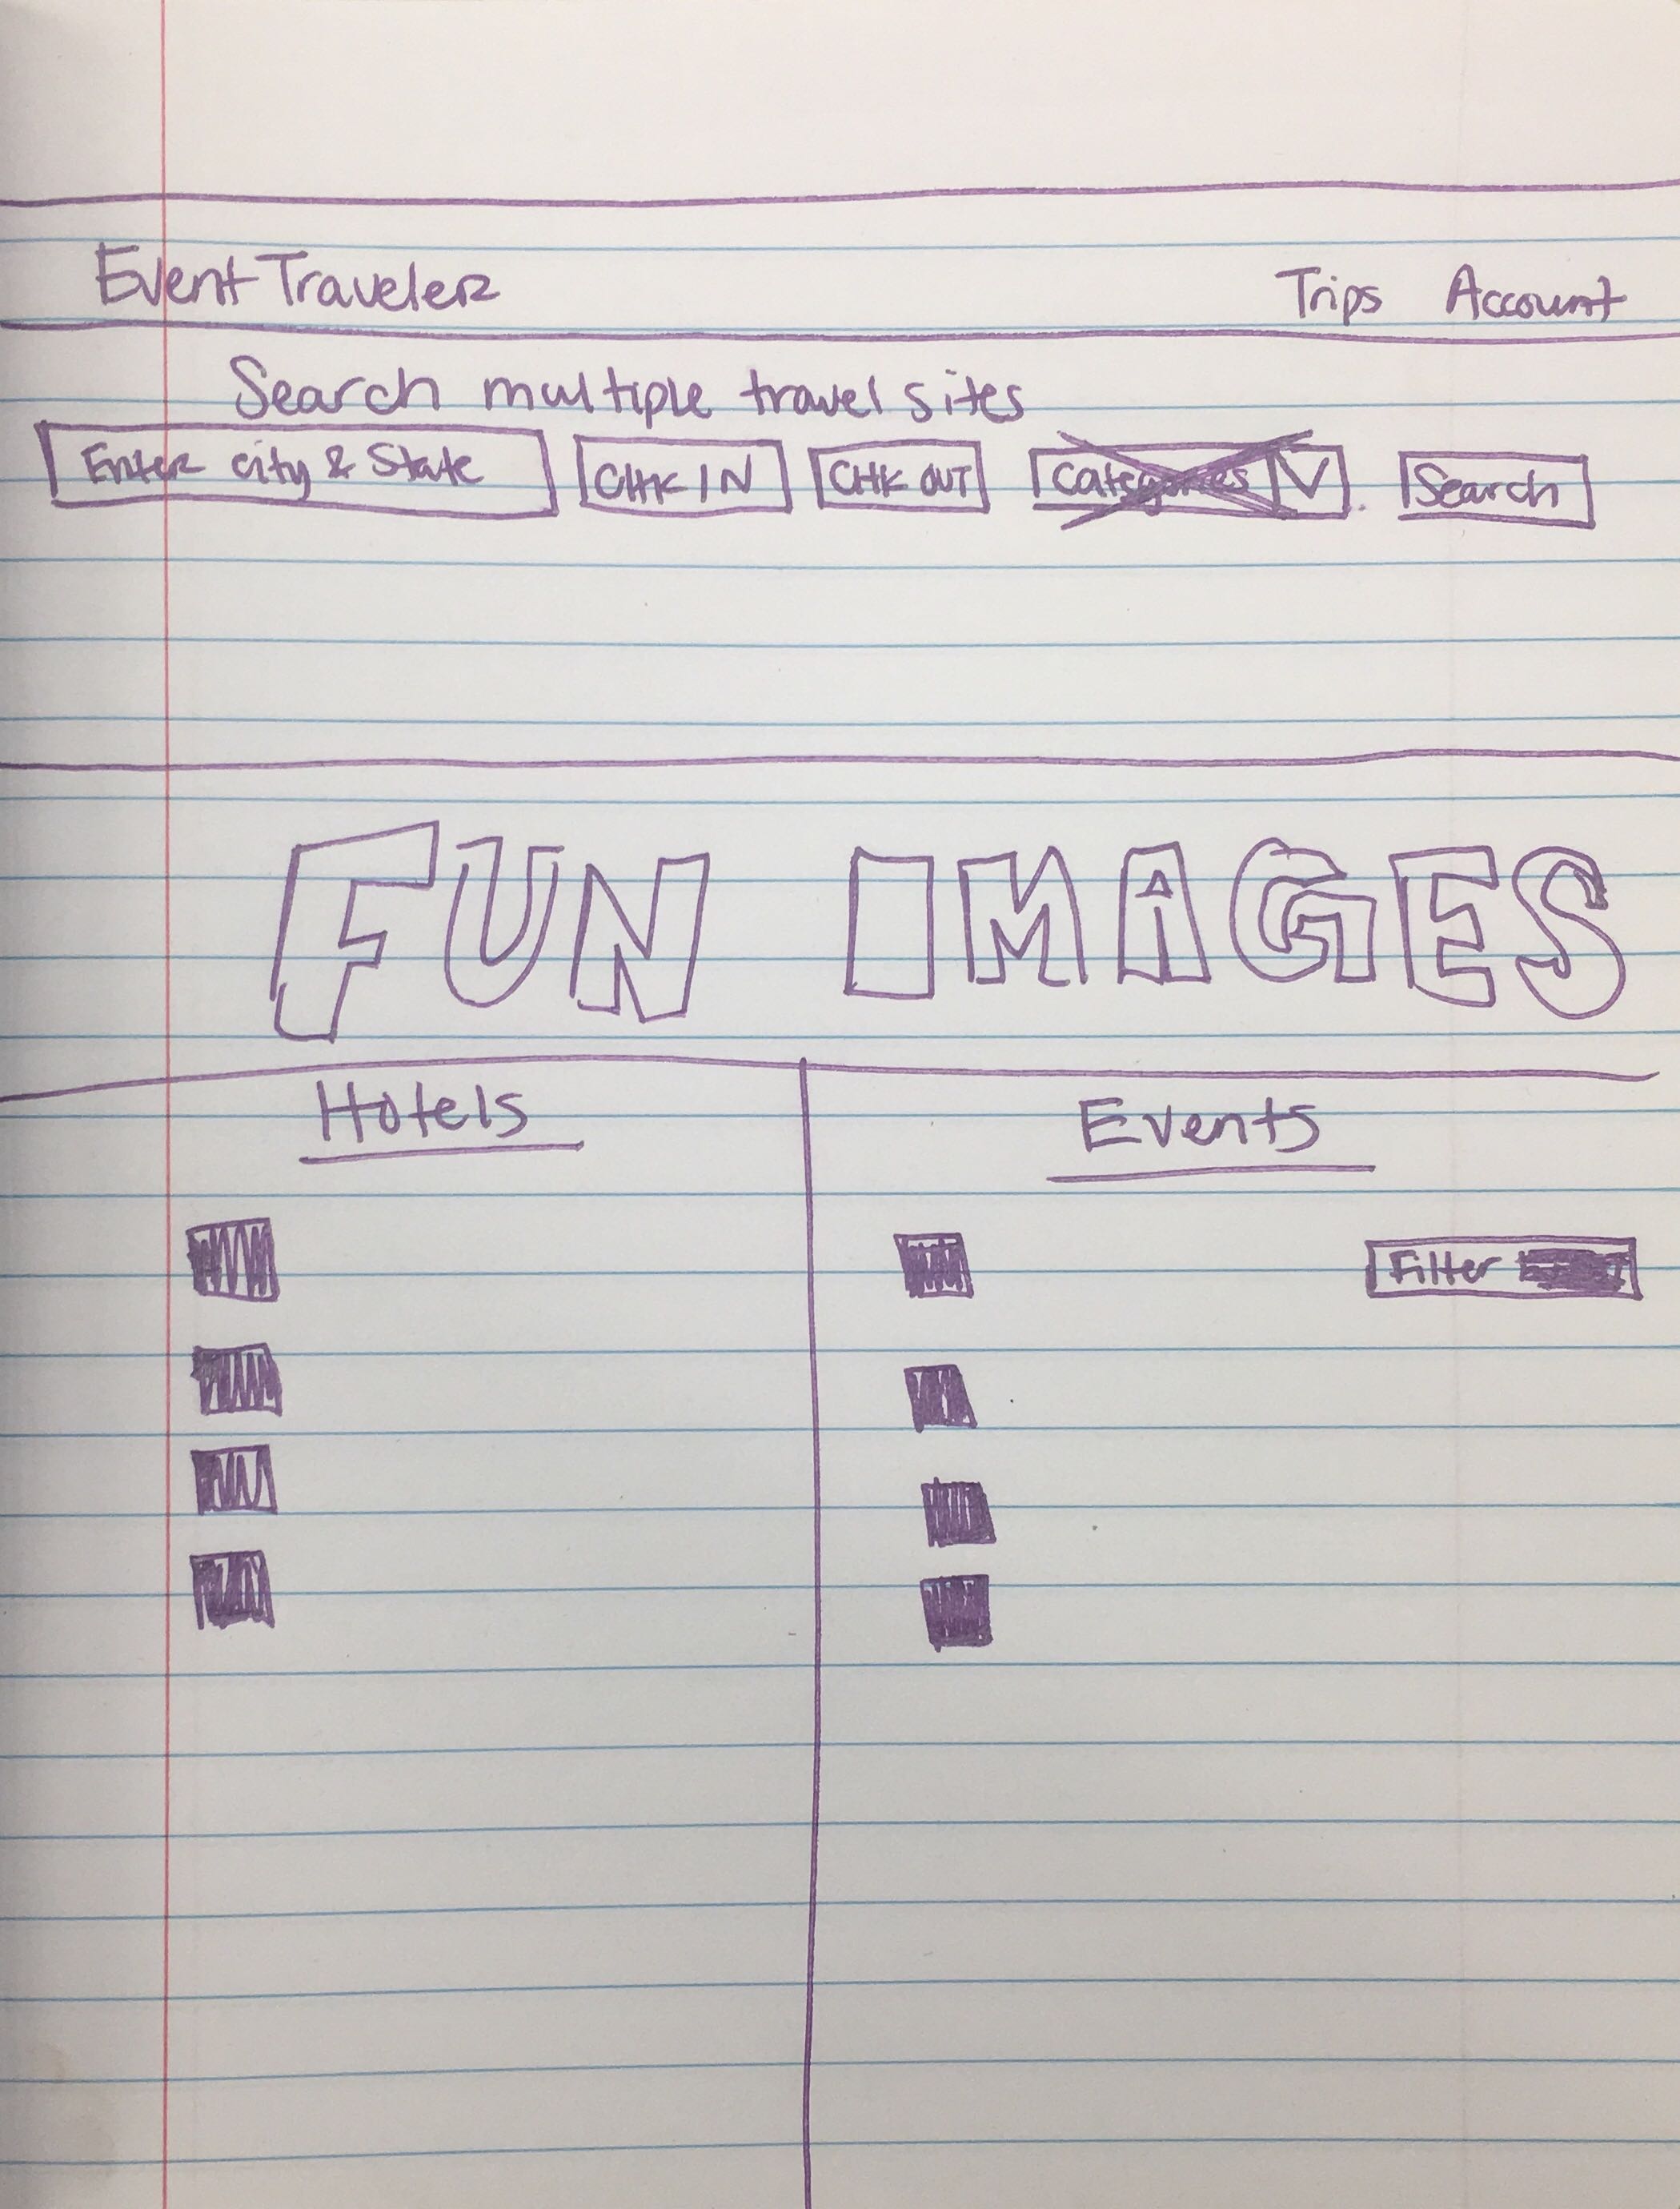 Event Traveler Trips Account
Search multiple travel sites
Enter city & State CHK IN CHK OUT Categories V Search
FUN IMAGES
Hotels Events
Filter